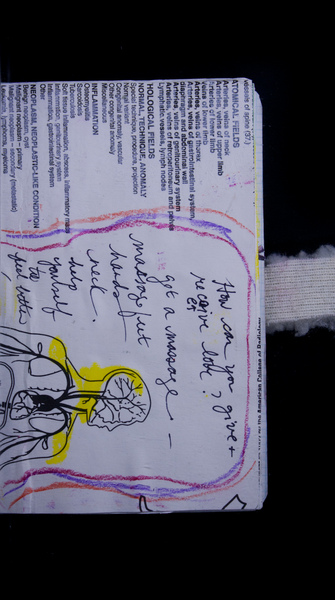 vessels of spine (37.)
ANATOMIC FIELDS
Arteries, veins of neck
Arteries, veins of upper limb
Arteries of lower limb
Veins of lower limb
Arteries, veins of thorax
diaphragm and abdominal wall
Arteries, veins of gastrointestinal system
Arteries, veins of genitourinary system
Arteries, veins of retroperitoneum and pelvis
Lymphatic vessels, lymph nodes
PATHOLOGICAL FIELDS
NORMAL, TECHNIQUE, ANOMALY
Normal variant
Special technique, procedure, projection
Congenital anomaly, vascular
Other congenital anomaly
Miscellaneous
INFLAMMATION
Osteomyelitis
Sarcoidosis
Tuberculosis
Soft tissue inflammation, abscess, inflammatory mass
Inflammation, genitourinary system
Inflammation, gastrointestinal system
Other
NEOPLASM, NEOPLASTIC-LIKE CONDITION
Benign neoplasm, cyst
Malignant neoplasm – primary
Malignant neoplasm – secondary (metastatic)
Leukemia, lymphoma, myeloma
the American College of Radiology
How can you give +
receive love?
get a massage –
massage feet
hands
neck.
hug
yourself
to
feel better